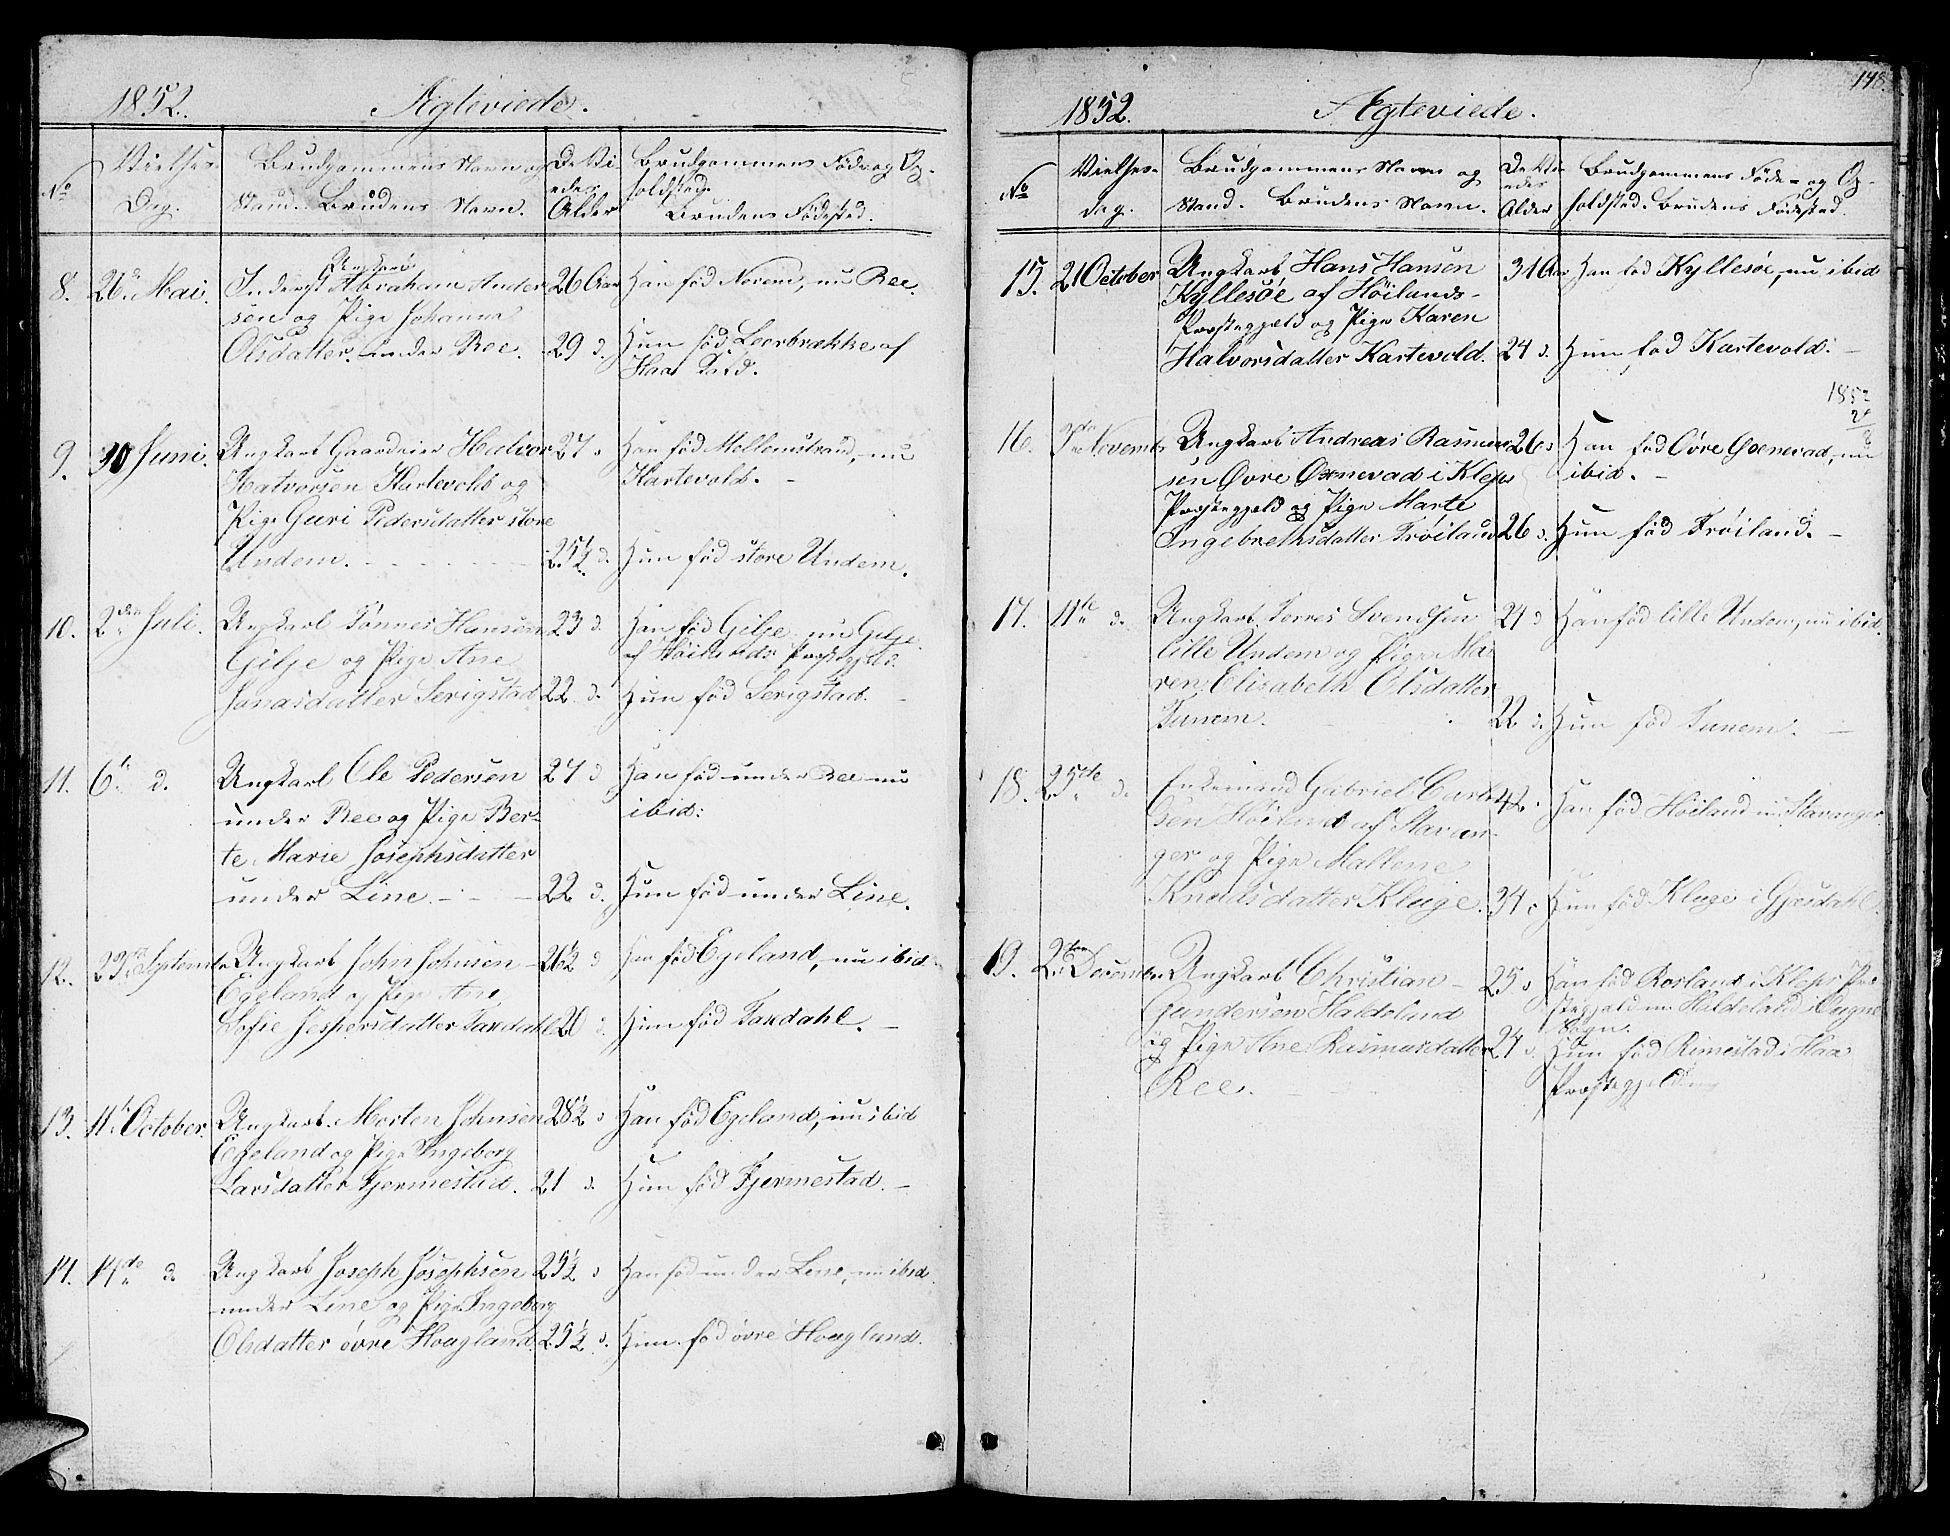 1852. Ægteviede.
No
Vielses-
Dag.
Brudgommens Navn og
Stand. Brudens Navn.
De Vi-
edes
Alder
Brudgommens Føde- og Op-
holdsted.
Brudens Fødested.
8. 26de Mai.
Ungkarl
Inderst Abraham Ander-
sen og Pige Johanna
Olsdatter under Ree.
26 Aar
29 d.
Han fød Norem, nu Ree.
Hun fød Leerbrække af
Haa
9. 30 Juni.
Ungkarl Gaardeier Halvor
Halvorsen Kartevold og
Pige Guri Pedersdatter store
Undem.
27 "
25½ d.
Han fød Mellemstrand, nu
Kartevold. -
Hun fød store Undem.
10. 2den Juli.
Ungkarl Tønnes Hansen
Gilje og Pige Ane
Jonasdatter Serigstad
23 d.
22 d.
Han fød Gilje nu Gilje
af Høilands Præstegjeld.
Hun fød Serigstad. -
11. 6te d.
Ungkarl Ole Pedersen
under Ree og Pige Ber-
te Marie Josephsdatter
under Line. -
27 d
22 d.
Han fød under Ree nu
ibid:
Hun fød under Line.
12. 23de Septemb.
Ungkarl John Johnsen
Egeland og Pige Ane
Sofie Jespersdatter Taxdahl
26½ d
20 d.
Han fød Egeland, nu ibid.
Hun fød Taxdahl. -
13. 11te October.
Ungkarl Morten Johnsen
Egeland og Pige Ingeborg
Larsdatter Fjermestad.
28½ d
21 d.
Han fød Egeland, nu ibid
Hun fød Fjermestad. -
14. 14de d.
Ungkarl Joseph Josephsen
under Line og Pige Ingeborg
Olsdatter øvre Hoagland.
25½ d
25½ d.
Han fød under Line, nu ibid.
Hun fød øvre Hoagland.
148.
1852. Ægteviede.
No
Vielses-
dag.
Brudgommens Navn og
Stand. Brudens Navn.
De Vi-
edes
Alder
Brudgommens Føde- og Op-
holdsted. Brudens Fødested.
15. 21 October
Ungkarl Hans Hansen
Kyllesøe af Høilands-
Præstegjeld og Pige Karen
Halvorsdatter Kartevold.
31 Aar
24 d.
Han fød Kyllesøe, nu ibid
Hun fød Kartevold. -
1852
16. November
Ungkarl Andreas Rasmus-
sen Øvre Oxnevad i Kleps
Præstegjeld og Pige Marte
Ingebrethsdatter Frøiland
26 d
26 d.
Han fød Øvre Oxnevad, nu
ibid. -
Hun fød Frøiland. -
17. 11te d.
Ungkarl Torres Svendsen
lille Undem og Pige Ma-
ren Elisabeth Olsdatter
Tunem.
24 d
22 d.
Han fød lille Undem, nu ibid.
Hun fød Tunem. -
18. 25de d.
Enkemand Gabriel Carl-
sen Høiland af Stavan-
ger og Pige Mallene
Knudsdatter Kluge.
42 "
34 d
Han fød Høiland nu Stavanger
Hun fød Kluge i Gjesdahl.
19. 2den Decemb.
Ungkarl Christian
Gundersen Haldeland
og Pige Ane Rasmusdatter
Ree.
25 d
24 d.
Han fød Rosland i Kleps Præ-
stegjeld nu Haldeland i Ougne
Sogn.
Hun fød Rimestad i Haa
Præstegjeld